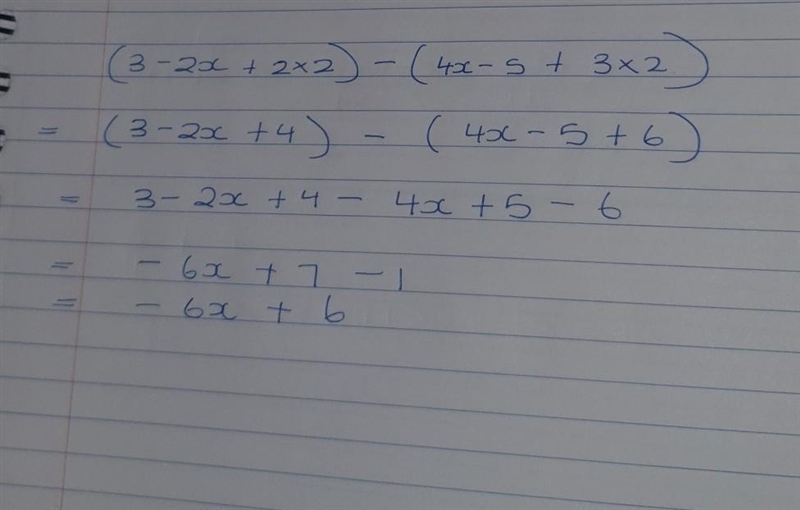 (3 - 2x + 2×2) - (4x - 5 + 3×2)
= (3 - 2x + 4) - (4x - 5 + 6)
= 3 - 2x + 4 - 4x + 5 - 6
= - 6x + 7 - 1
= - 6x + 6